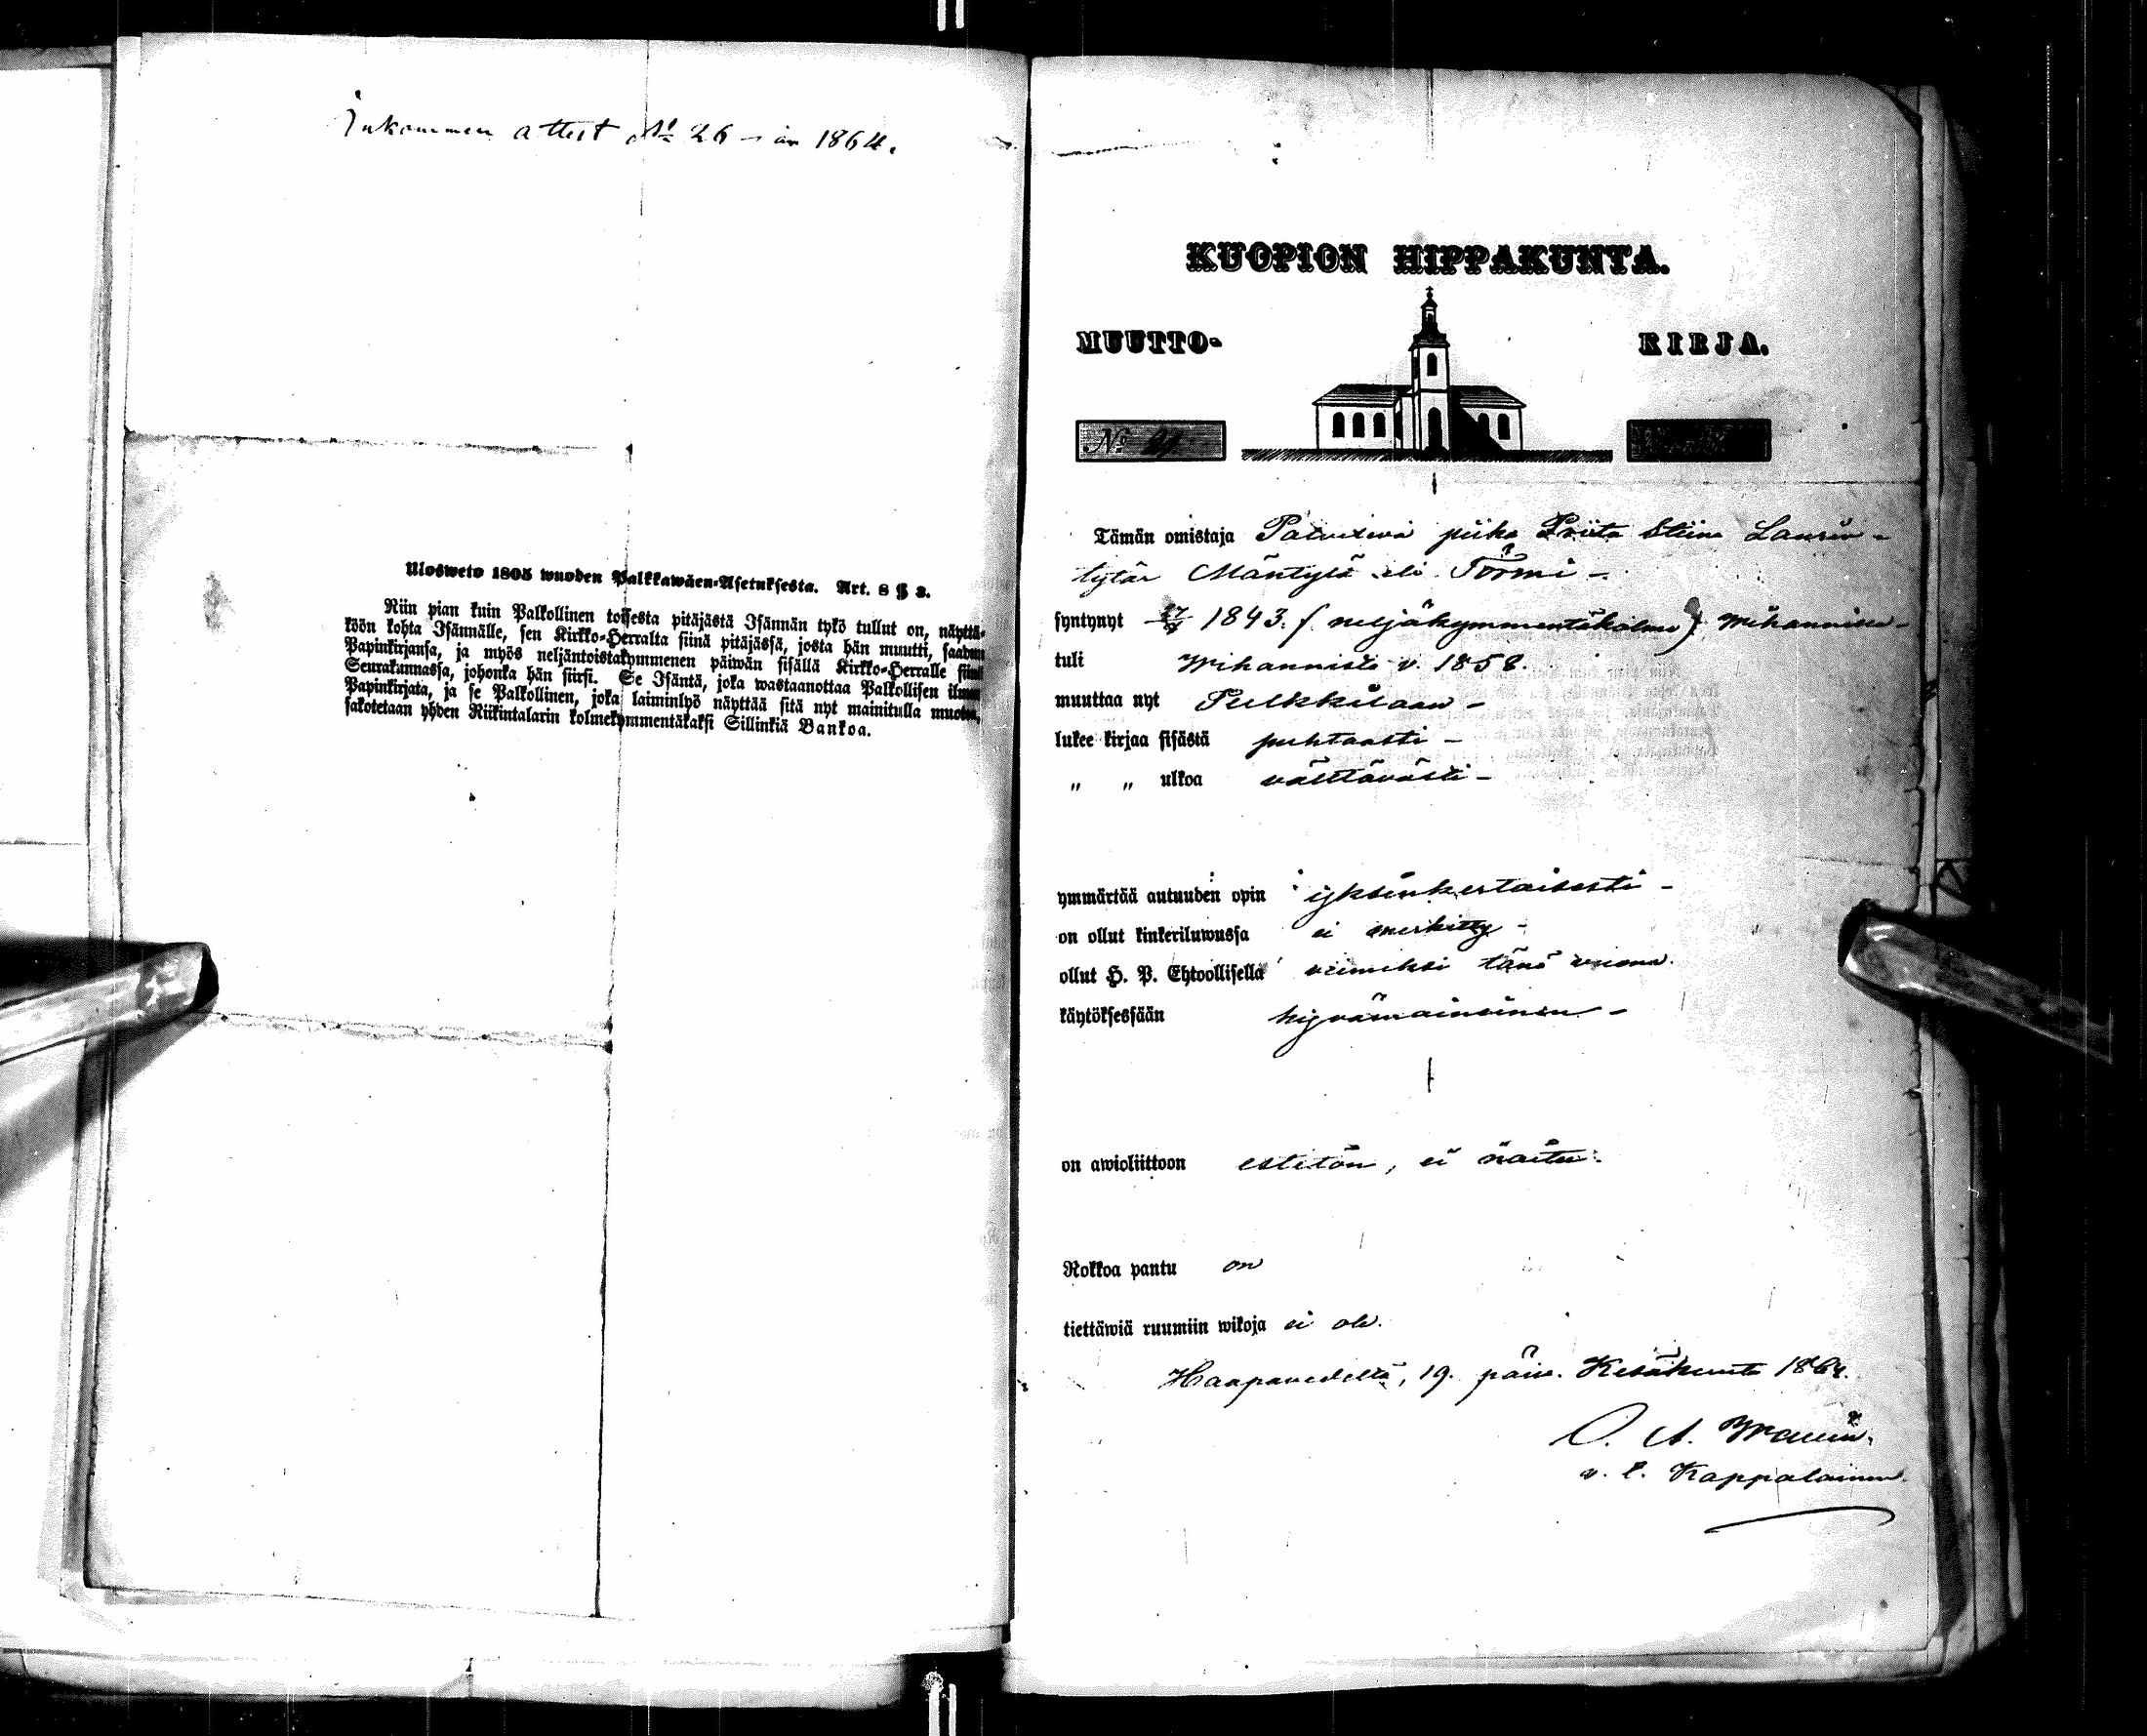 Inkommen attest No 26 – år 1864.
Ulosweto 1805 wuoden Palkkawäen-Asetuksesta. Art. 8 § 3.
Niin pian kuin Palkollinen toisesta pitäjästä Isännän tykö tullut on, näyttä-
köön kohta Isännälle, sen Kirkko-Herralta siinä pitäjässä, josta hän muutti, saadun
Papinkirjansa, ja myös neljäntoistakymmenen päiwän sisällä Kirkko-Herralle siinä
Seurakunnassa, johonka hän siirsi. Se Isäntä, joka wastaanottaa Palkollisen ilman
Papinkirjata, ja se Palkollinen, joka laiminlyö näyttää sitä nyt mainitulla muoton,
sakotetaan yhden Riikintalarin kolmekymmentäkaksi Sillinkiä Bankoa.
KUOPION HIPPAKUNTA.
MUUTTO- KIRJA.
No
Tämän omistaja Palveleva piika Priita Stiina Laurin-
tytär Mäntylä eli Törmi –
syntynyt 1843. (neljäkymmentäkolme) Wihannissa –
tuli Wihannista v. 1858.
muuttaa nyt Pulkkilaan –
lukee kirjaa sisästä puhtaasti –
„ „ ulkoa välttävästi –
ymmärtää autuuden opin yksinkertaisesti –
on ollut kinkeriluwussa ei merkitty –
ollut H. P. Ehtoollisella viimeksi tänä vuonna.
käytöksessään hyvämaineinen –
on awioliittoon estetön, ei naitu.
Rokkoa pantu on
tiettäwiä ruumiin wikoja ei ole.
Haapavedeltä, 19. päiv. Kesäkuuta 1864.
O. A.
v. t. Kappalainen